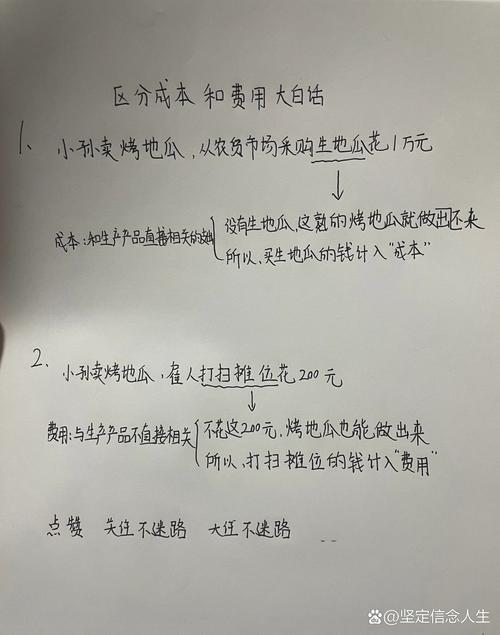 区分成本和费用大白话
1、小孙卖烤地瓜，从农贸市场采购生地瓜花1万元
没有生地瓜，这熟的烤地瓜就做出不来
成本：和生产产品直接相关的
所以，买生地瓜的钱计入“成本”
2、小孙卖烤地瓜，雇人打扫摊位花200元
不花这200元，烤地瓜也能做出来
费用：与生产产品不直接相关
所以，打扫摊位的钱计入“费用”
点赞 关注不迷路 大注不迷路
@坚定信念人生